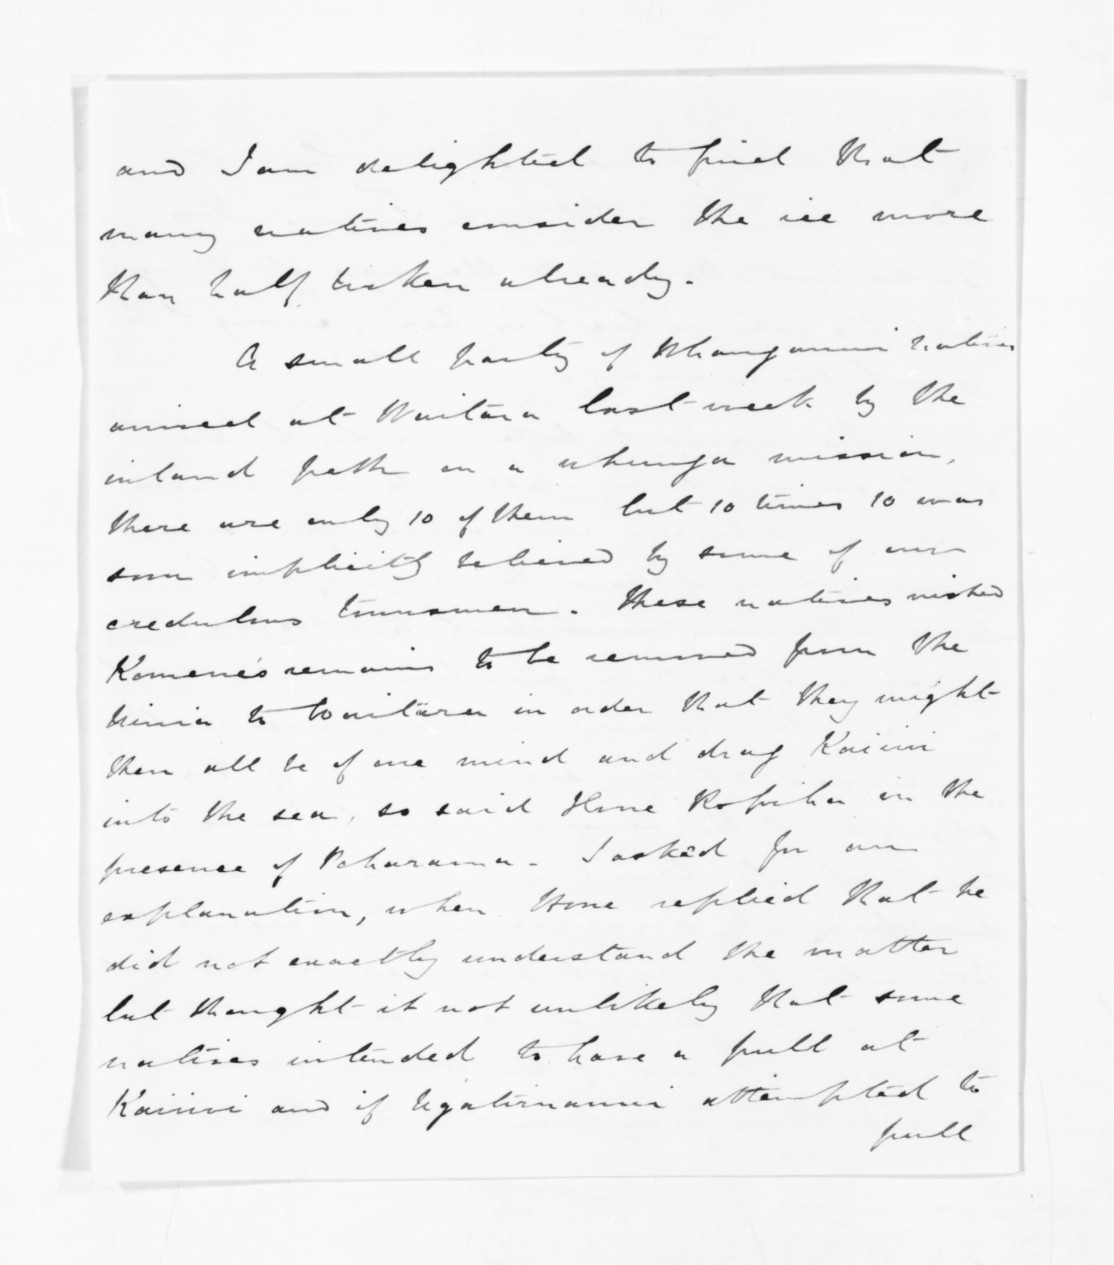 and I am delighted to find that
many natives consider the ice more
than half broken already.
A small party of Whanganui natives
arrived at Waitara last week by the
inland path on a uhunga mission,
there are only 10 of them but 10 times 10 was
soon implicitly believed by some of our
credulous townsmen. These natives wished
Komene's remains to be removed from the
Ninia to Waitara in order that they might
then all be of one mind and drag Kaiiwi
into the sea, so said Hone Ropiha in the
presence of Poharama. I asked for an
explanation, when Hone replied that he
did not exactly understand the matter
but thought it not unlikely that some
natives intended to have a pull at
Kaiiwi and if Ngatiruanui attempted to
pull